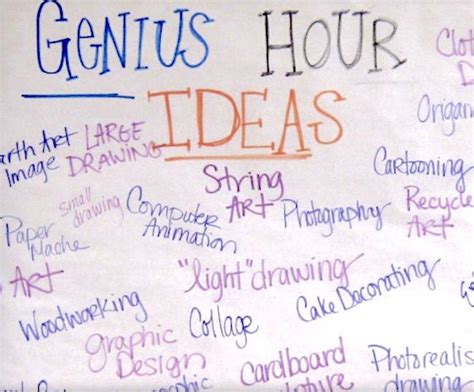 GENIUS HOUR
IDEAS
Clot
Origam
arth Art
Image
LARGE
DRAWING
Cartooning
String
ART
small
drawing
Computer
Animation
Photography
Recycle
ART
Paper
Mache
ART
"light" drawing
Cake Decorating
Woodworking
Collage
graphic
Design
Cardboard
Photorealis
drawing